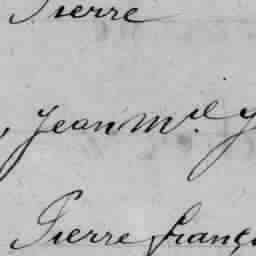 Pierre
, Jean M.el J
Pierre franç